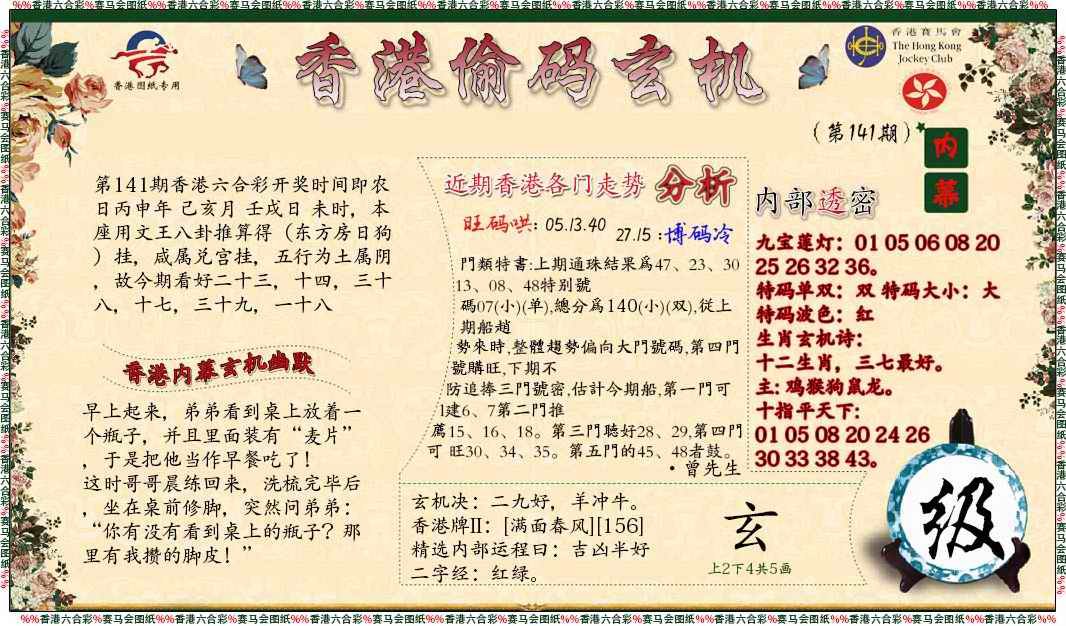 %%香港六合彩%赛马会图纸%%香港六合彩%赛马会图纸%%香港六合彩%赛马会图纸%%香港六合彩%赛马会图纸%%香港六合彩%赛马会图纸%%香港六合彩%赛马会图纸%%香港六合彩%%
香港图纸专用
香港偷码玄机
香港賽馬會
The Hong Kong
Jockey Club
(第141期)
内幕
第141期香港六合彩开奖时间即农
日丙申年 己亥月 壬戌日 未时，本
座用文王八卦推算得（东方房日狗
）挂，咸属兑宫挂，五行为土属阴
，故今期看好二十三，十四，三十
八，十七，三十九，一十八
香港内幕玄机幽默
早上起来，弟弟看到桌上放着一
个瓶子，并且里面装有“麦片”
，于是把他当作早餐吃了！
这时哥哥晨练回来，洗梳完毕后
，坐在桌前修脚，突然问弟弟：
“你有没有看到桌上的瓶子？那
里有我攒的脚皮！”
近期香港各门走势 分析
旺码哄: 05.13.40
27.15 :博码冷
門類特書:上期通珠結果爲47、23、30
13、08、48特别號
碼07(小)(单),總分爲140(小)(双),從上
期船趙
勢來時,整體趨勢偏向大門號碼,第四門
號購旺,下期不
防追捧三門號密,估計今期船,第一門可
1建6、7第二門推
薦15、16、18。第三門聽好28、29,第四門
可 旺30、34、35。第五門的45、48者鼓。
·曾先生
内部透密
九宝莲灯：01 05 06 08 20
25 26 32 36。
特码单双：双 特码大小：大
特码波色：红
生肖玄机诗：
十二生肖，三七最好。
主: 鸡猴狗鼠龙。
十指平天下:
01 05 08 20 24 26
30 33 38 43。
玄机决：二九好，羊冲牛。
香港牌II：[满面春风][156]
精选内部运程日：吉凶半好
二字经：红绿。
玄
上2下4共5画
级
%%香港六合彩%赛马会图纸%%香港六合彩%赛马会图纸%%香港六合彩%赛马会图纸%%香港六合彩%赛马会图纸%%香港六合彩%赛马会图纸%%香港六合彩%赛马会图纸%%香港六合彩%%